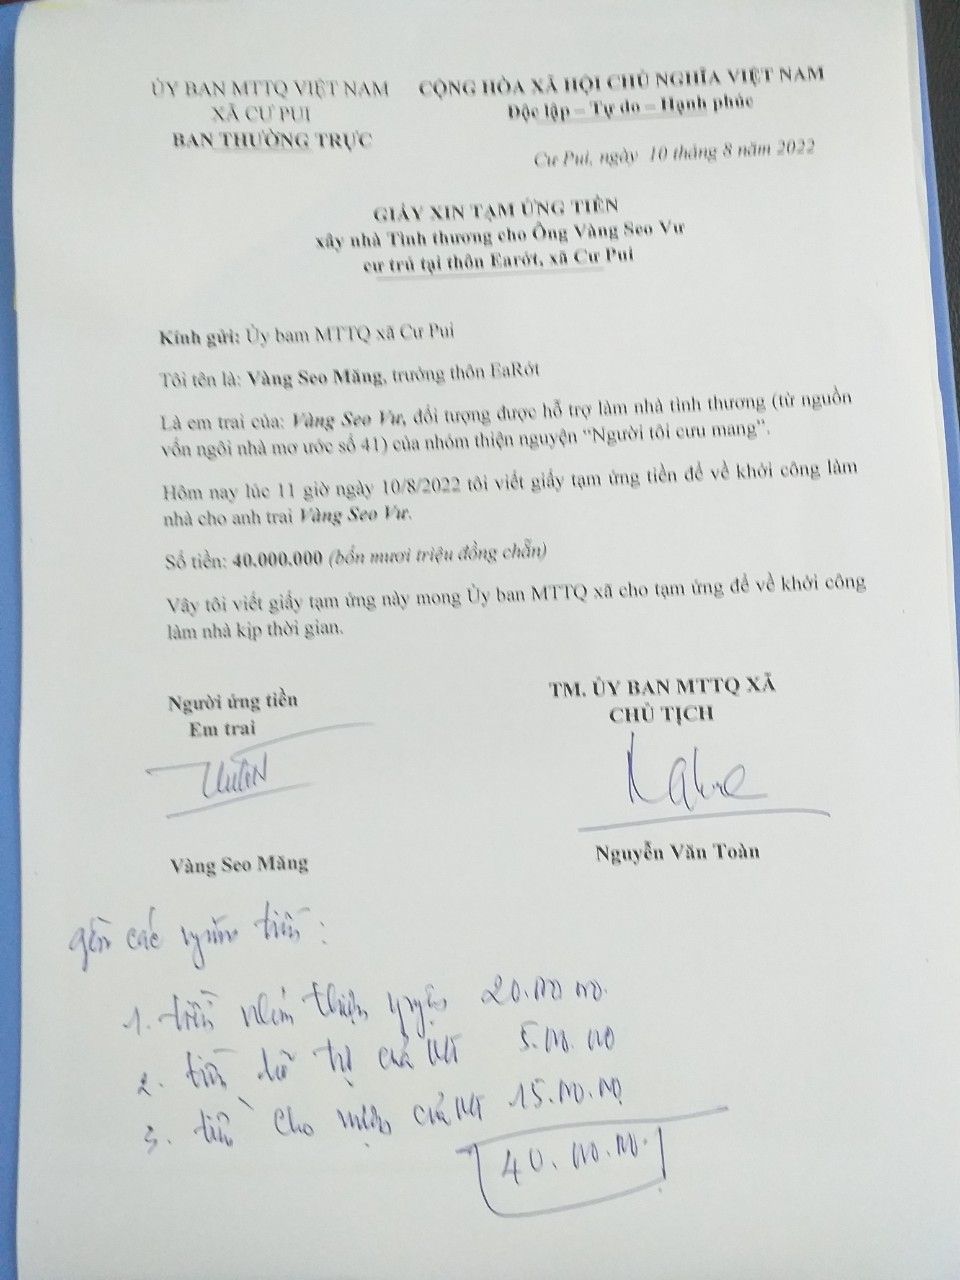 ỦY BAN MTTQ VIỆT NAM
XÃ CƯ PUI
BAN THƯỜNG TRỰC
CỘNG HÒA XÃ HỘI CHỦ NGHĨA VIỆT NAM
Độc lập – Tự do – Hạnh phúc
Cư Pui, ngày 10 tháng 8 năm 2022
GIẤY XIN TẠM ỨNG TIỀN
xây nhà Tình thương cho Ông Vàng Seo Vư
cư trú tại thôn Earớt, xã Cư Pui
Kính gửi: Ủy bam MTTQ xã Cư Pui
Tôi tên là: Vàng Seo Măng, trưởng thôn EaRớt
Là em trai của: Vàng Seo Vư, đối tượng được hỗ trợ làm nhà tình thương (từ nguồn
vốn ngôi nhà mơ ước số 41) của nhóm thiện nguyện “Người tôi cưu mang”.
Hôm nay lúc 11 giờ ngày 10/8/2022 tôi viết giấy tạm ứng tiền để về khởi công làm
nhà cho anh trai Vàng Seo Vư.
Số tiền: 40.000.000 (bốn mươi triệu đồng chẵn)
Vây tôi viết giấy tạm ứng này mong Ủy ban MTTQ xã cho tạm ứng để về khởi công
làm nhà kịp thời gian.
Người ứng tiền
Em trai
TM. ỦY BAN MTTQ XÃ
CHỦ TỊCH
Vàng Seo Măng
Nguyễn Văn Toàn
gồm các nguồn tiền:
1. tiền nhóm thiện nguyện 20.000.000.
2. tiền hỗ trợ của MT 5.000.000
3. tiền cho mượn của MT 15.000.000
40.000.000.